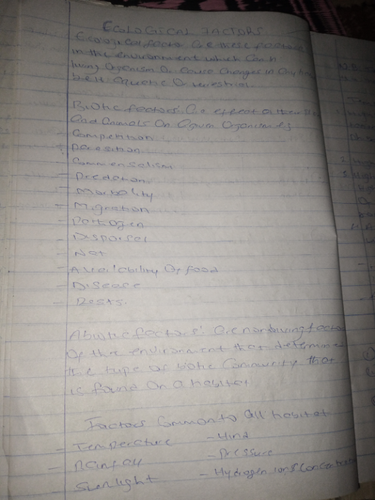 ECOLOGICAL FACTORS
Ecological factors are those factors
in the environment which can
living organism or cause changes in any
habitat aquatic or terrestrial
Biotic factors are effect of other
and animals on given organisms
Competition
Parasitism
Commensalism
- Predation
- Mortality
- Migration
- Pathogen
- Dispersal
- Availability of food
- Disease
- Pests
Abiotic factors: are nonliving factors
of the environment that determine
the type of biotic community that
is found on a habitat
Factors common to all habitat
- Temperature - Wind
- Rainfall - Pressure
- Sunlight - Hydrogen ions concentration